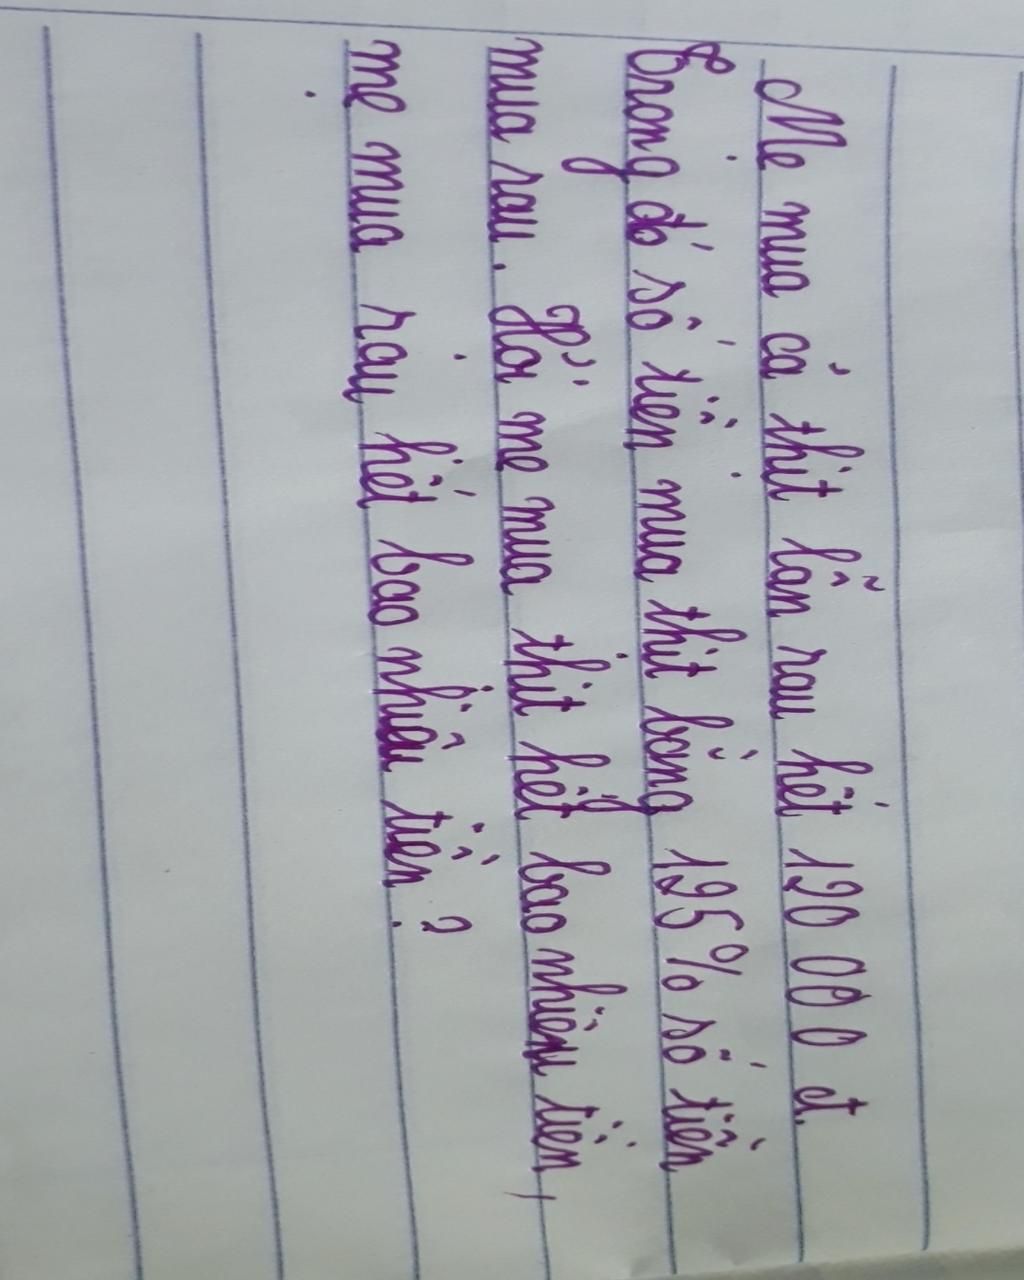 Mẹ mua cả thịt lẫn rau hết 120 000 đ.
Trong đó số tiền mua thịt bằng 125% số tiền
mua rau. Hỏi mẹ mua thịt hết bao nhiêu tiền,
mẹ mua rau hết bao nhiêu tiền?